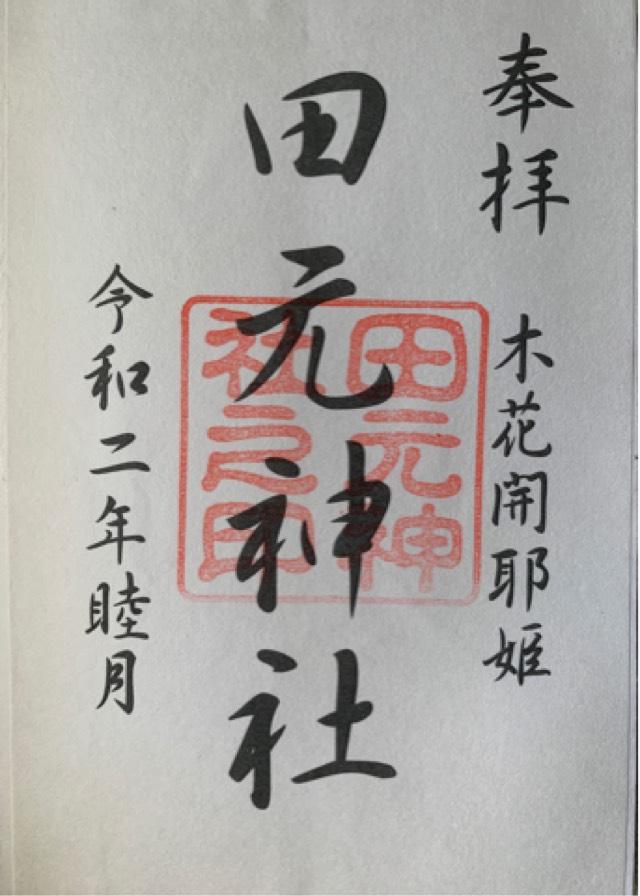 奉拝
木花開耶姫
田元神社
田元神
社之印
令和二年睦月